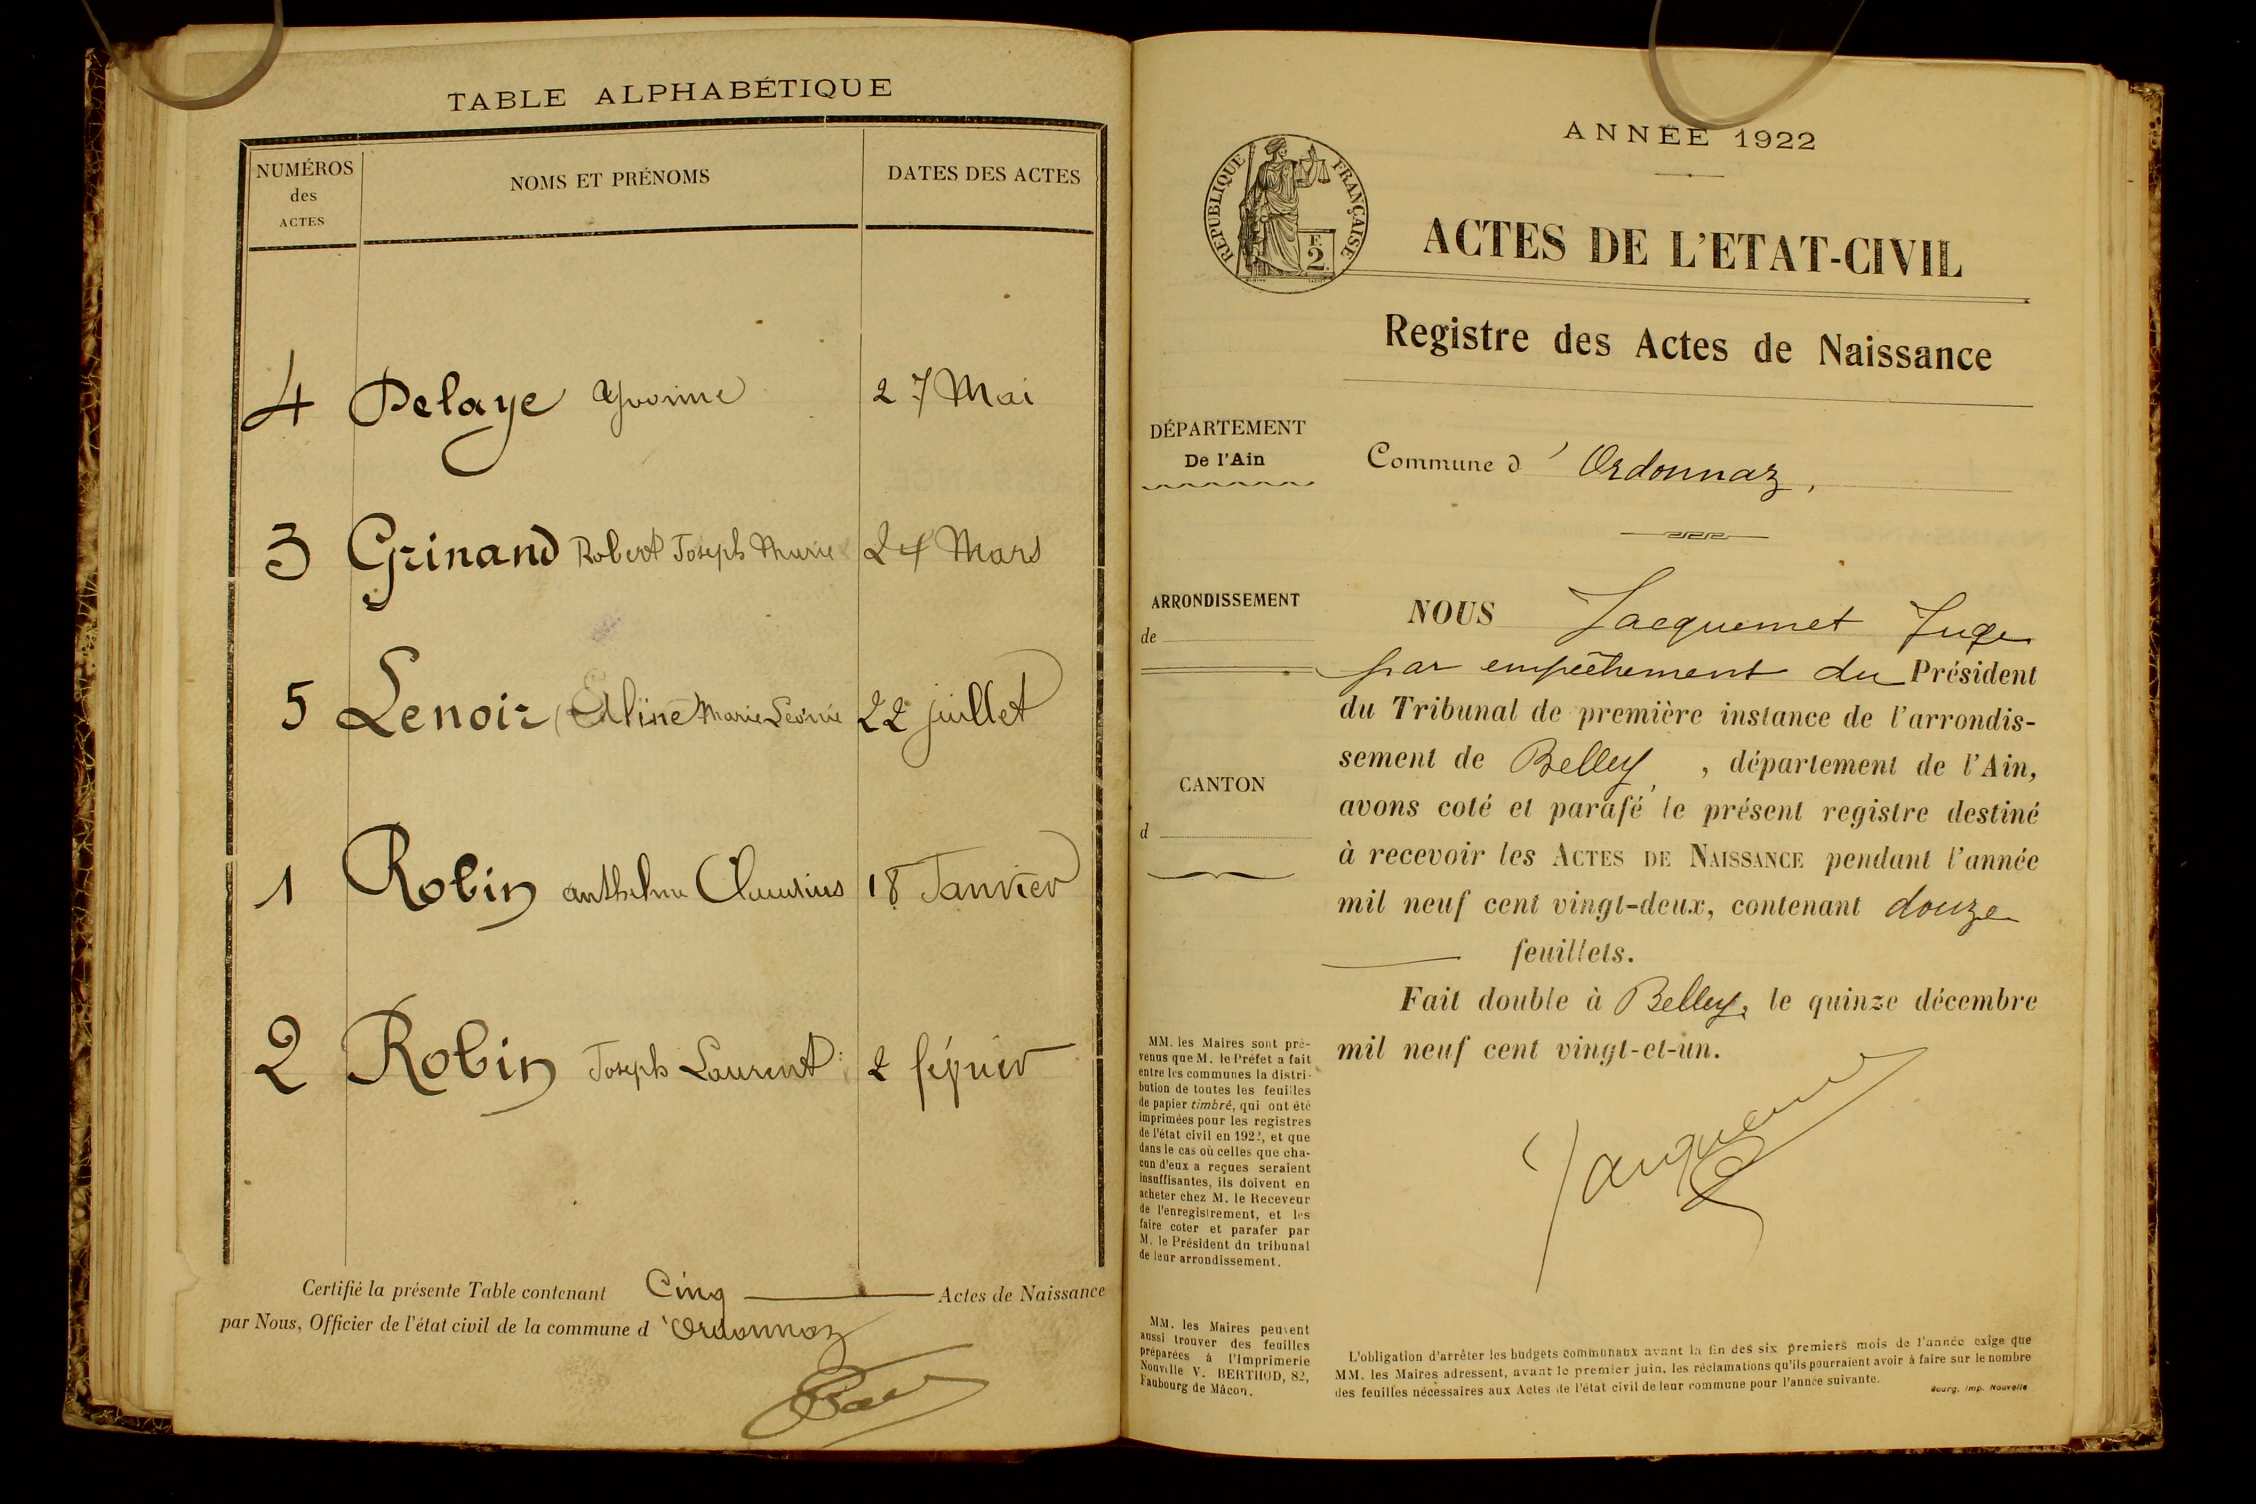 TABLE ALPHABÉTIQUE
NUMÉROS des ACTES NOMS ET PRÉNOMS DATES DES ACTES
4 Delaye Yvonne 27 Mai
3 Grinand Robert Joseph Marie 24 Mars
5 Lenoir Aline Marie Léonie 22 juillet
1 Robin anthelme Claudius 18 Janvier
2 Robin Joseph Laurent 2 février
Certifié la présente Table contenant Cinq Actes de Naissance
par Nous, Officier de l'état civil de la commune d'Ordonnaz
ANNÉE 1922
RÉPUBLIQUE FRANÇAISE
F. 2
ACTES DE L'ETAT-CIVIL
Registre des Actes de Naissance
DÉPARTEMENT
De l'Ain
Commune d'Ordonnaz,
ARRONDISSEMENT
de
CANTON
d
NOUS Jacquemet Juge
par empêchement du Président
du Tribunal de première instance de l'arrondis-
sement de Belley, département de l'Ain,
avons coté et parafé le présent registre destiné
à recevoir les ACTES DE NAISSANCE pendant l'année
mil neuf cent vingt-deux, contenant douze
feuillets.
Fait double à Belley, le quinze décembre
mil neuf cent vingt-et-un.
MM. les Maires sont pré-
venus que M. le Préfet a fait
entre les communes la distri-
bution de toutes les feuilles
de papier timbré, qui ont été
imprimées pour les registres
de l'état civil en 1922, et que
dans le cas où celles que cha-
cun d'eux a reçues seraient
insuffisantes, ils doivent en
acheter chez M. le Receveur
de l'enregistrement, et les
faire coter et parafer par
M. le Président du tribunal
de leur arrondissement.
MM. les Maires peuvent
aussi trouver des feuilles
préparées à l'Imprimerie
Nouvelle V. BERTHOD, 82,
Faubourg de Mâcon.
L'obligation d'arrêter les budgets communaux avant la fin des six premiers mois de l'année exige que
MM. les Maires adressent, avant le premier juin, les réclamations qu'ils pourraient avoir à faire sur le nombre
des feuilles nécessaires aux Actes de l'état civil de leur commune pour l'année suivante.
Bourg. Imp. Nouvelle